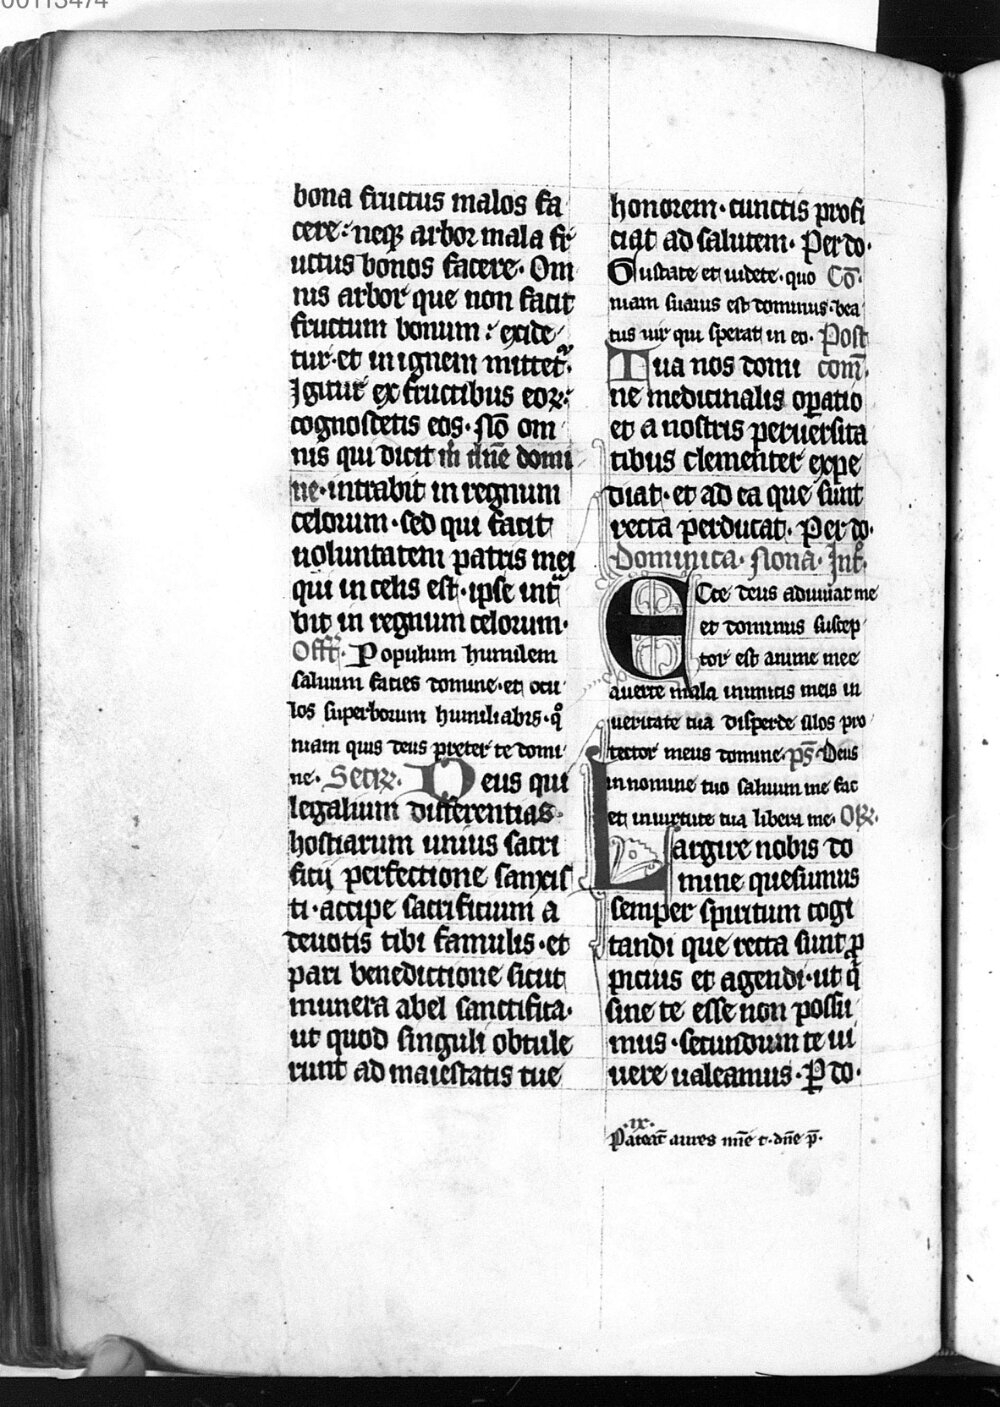 00113474
bona fructus malos fa
cere· neqꝫ arbor mala fr
uctus bonos facere· Om
nis arbor que non facit
fructum bonum· excide
tur· et in ignem mittet᷑·
Igitur ex fructibus eoꝝ·
cognoscetis eos· Nō om
nis qui dicit m̄ dn̄e domi
ne· intrabit in regnum
celorum· sed qui facit
uoluntatem patris mei
qui in celis est· ipse int̃
bit in regnum celorum·
Off̄· Populum humilem
saluum facies domine· et ocu
los superborum humiliabis· qͦ
niam quis deus preter te domi
ne· Secrꝝ· Deus qui
legalium differentias
hostiarum unius sacri
ficij perfectione sanxis
ti· accipe sacrificium a
deuotis tibi famulis· et
pari benedictione sicut
munera abel sanctifica·
ut quod singuli obtule
runt ad maiestatis tue
honorem· cunctis profi
ciat ad salutem· Per do·
Gustate et uidete· quo Cō·
niam suauis est dominus· bea
tus uir qui sperat in eo· Post
Tua nos domi com̄·
ne medicinalis oꝑatio
et a nostris peruersita
tibus clementer expe
diat· et ad ea que sunt
recta perducat· Per do·
Dominica· Nona· Int̄·
Ecce deus adiuuat me
et dominus suscep
tor est anime mee
auerte mala inimicis meis in
ueritate tua disperde illos pro
tector meus domine· ps̄· Deus
in nomine tuo saluum me fac
et in uirtute tua libera me· Oꝝ·
Largire nobis do
mine quesumus
semper spiritum cogi
tandi que recta sunt ꝓ
picius et agendi· ut q̄
sine te esse non possu
mus· secundum te ui
uere ualeamus· Ꝑ do·
·ix·
Pateat̄ aures mīe t· dn̄e p̄·